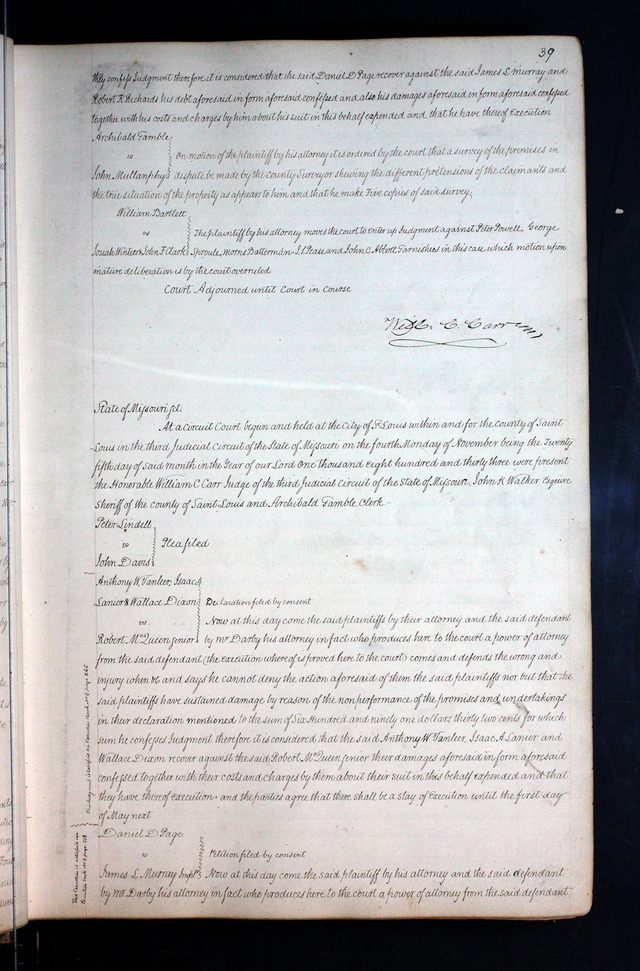 39
they confess Judgment therefore it is considered that the said Daniel D Page recover against the said James L Murray and
Robert K Richards his debt aforesaid in form aforesaid confessed and also his damages aforesaid in form aforesaid confessed
together with his costs and charges by him about his suit in this behalf expended and that he have thereof Execution
Archibald Gamble
vs
On motion of the plaintiff by his attorney it is ordered by the court that a survey of the premises in
John Mullanphy dispute be made by the County Surveyor shewing the different pretensions of the claimants and
the true situation of the property as appears to him and that he make Five copies of said survey
William Bartlett
vs
The plaintiff by his attorney moves the court to enter up Judgment against Peter Powell George
Josiah Winter & John F Clark Sproule, Morris Batterman J. L Pease and John C Abbott Garnishees in this case which motion upon
mature deliberation is by the court overruled
Court Adjourned until Court in Course
Will. C. Carr
State of Missouri sct.
At a circuit Court begun and held at the City of St Louis within and for the county of Saint
Louis in the third Judicial Circuit of the State of Missouri on the fourth Monday of November being the Twenty
fifth day of said month in the Year of our Lord One thousand Eight hundred and thirty three were present
the Honorable William C Carr Judge of the third Judicial Circuit of the State of Missouri, John K Walker Esquire
Sheriff of the county of Saint Louis and Archibald Gamble Clerk
Peter Lindell
vs Plea filed
John Davis
Anthony W Vanleer, Isaac A
Lanier & Wallace Dixon Declaration filed by consent
vs Now at this day come the said plaintiffs by their attorney and the said defendant
Robert McQueen senior by Mr Darby his attorney in fact who produces here to the court a power of attorney
from the said defendant (the execution whereof is proved here to the court) comes and defends the wrong and
injury when &c and says he cannot deny the action aforesaid of them the said plaintiffs nor but that the
said plaintiffs have sustained damage by reason of the nonperformance of the promises and undertakings
in their declaration mentioned to the sum of Six Hundred and ninety one dollars thirty two cents for which
sum he confesses Judgment therefore it is considered that the said Anthony W Vanleer, Isaac A Lanier and
Wallace Dixon recover against the said Robert McQueen senior their damages aforesaid in form aforesaid
confessed together with their costs and charges by them about their suit in this behalf expended and that
they have thereof Execution and the parties agree that there shall be a stay of Execution until the first day
of May next
Daniel D Page
vs Petition filed by consent
James L Murray Now at this day come the said plaintiff by his attorney and the said defendant
by Mr Darby his attorney in fact who produces here to the court a power of attorney from the said defendant